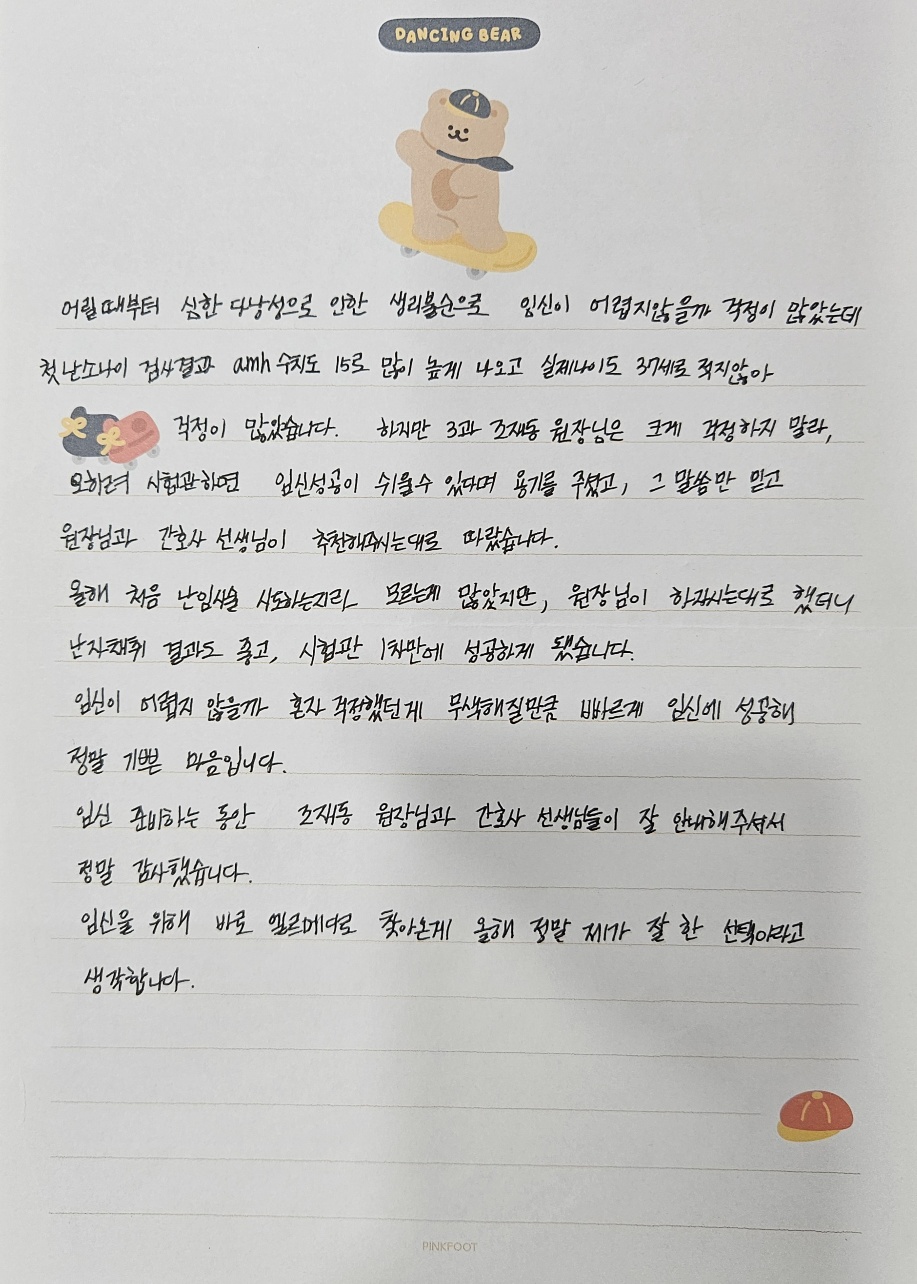 DANCING BEAR
어릴때부터 심한 다낭성으로 인한 생리불순으로 임신이 어렵지않을까 걱정이 많았는데
첫 난소나이 검사결과 amh 수치도 15로 많이 높게 나오고 실제나이도 37세로 적지않아
걱정이 많았습니다. 하지만 3과 조재동 원장님은 크게 걱정하지 말라,
오히려 시험관하면 임신성공이 쉬울수 있다며 용기를 주셨고, 그 말씀만 믿고
원장님과 간호사 선생님이 추천해주시는대로 따랐습니다.
올해 처음 난임시술 시도하는지라 모르는게 많았지만, 원장님이 하자시는대로 했더니
난자채취 결과도 좋고, 시험관 1차만에 성공하게 됐습니다.
임신이 어렵지 않을까 혼자 걱정했던게 무색해질만큼 빠르게 임신에 성공해
정말 기쁜 마음입니다.
임신 준비하는 동안 조재동 원장님과 간호사 선생님들이 잘 안내해주셔서
정말 감사했습니다.
임신을 위해 바로 엘르메디로 찾아온게 올해 정말 제가 잘 한 선택이라고
생각합니다.
PINKFOOT